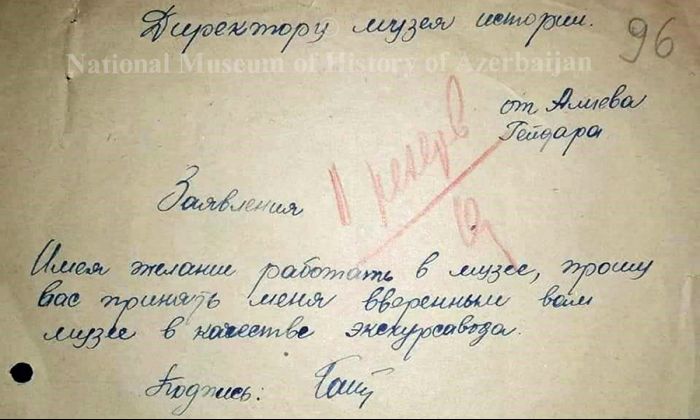 Директору музея истории.
96
National Museum of History of Azerbaijan
от Алиева
Гейдара
в резерв
Заявления
Имея желание работать в музее, прошу
вас принять меня вверенным вам
музее в качестве экскурсавода.
Подпись: